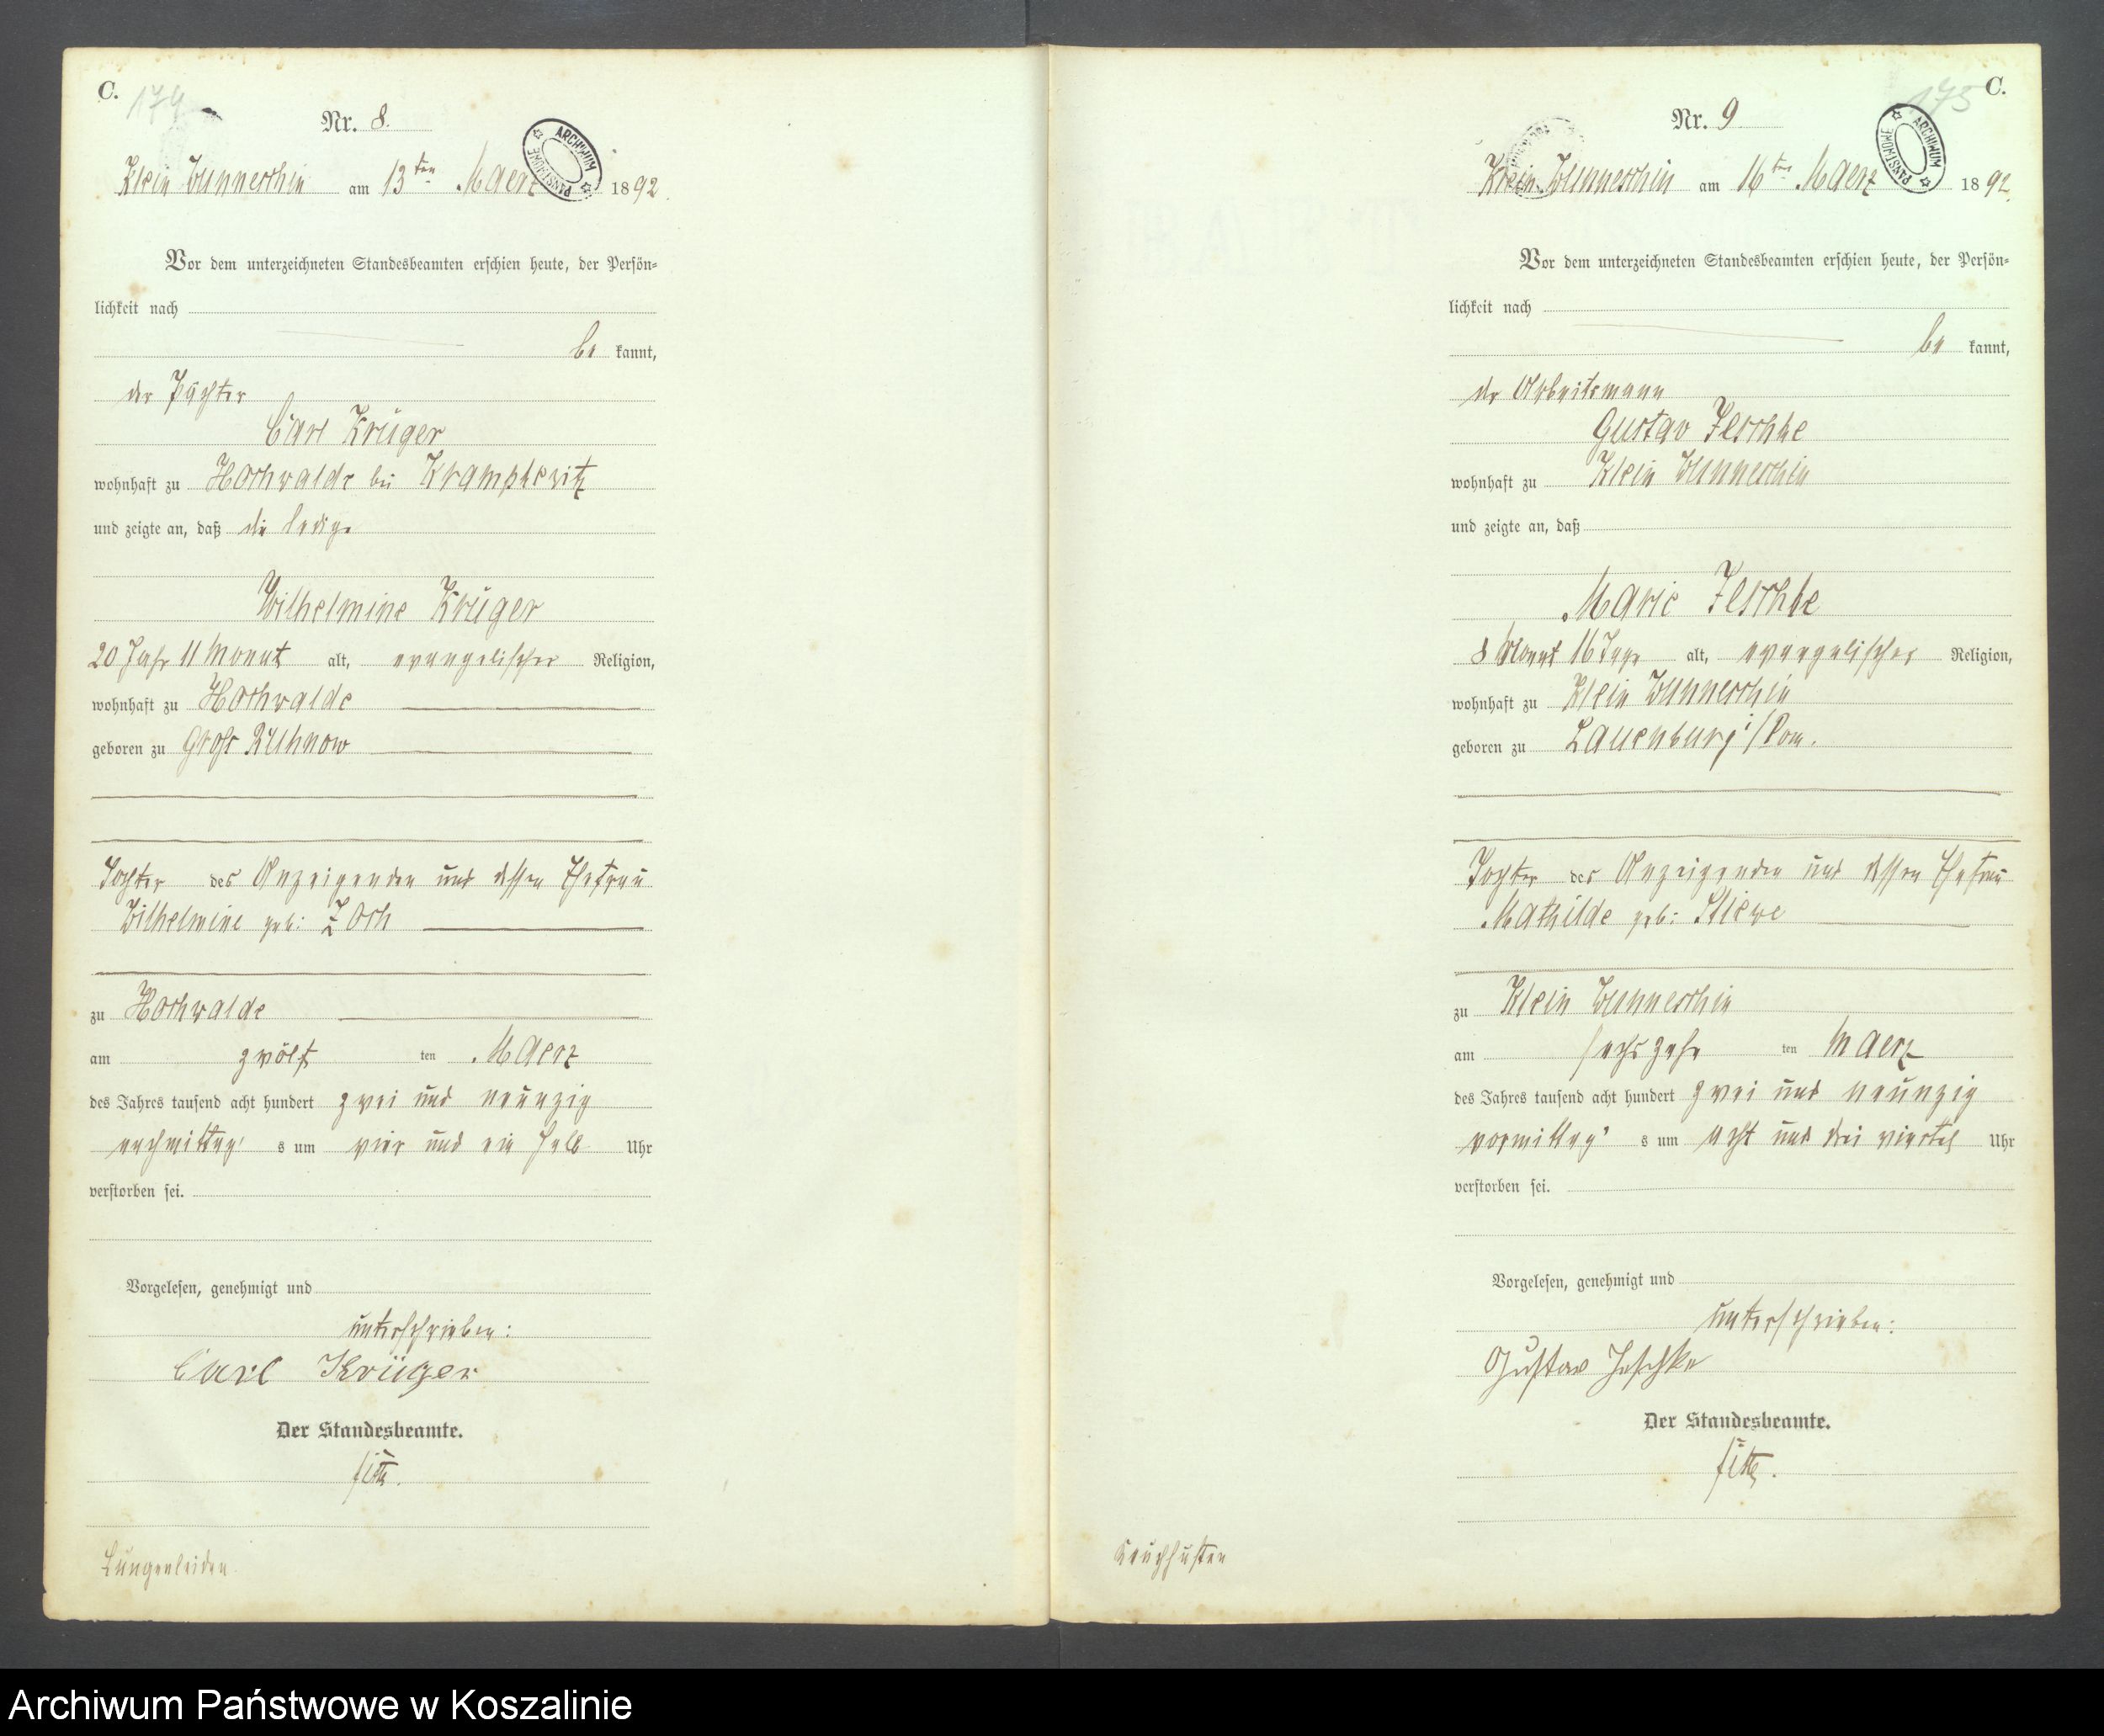 C.
174
Nr. 8.
ARCHIWUM PAŃSTWOWE
Klein Wunneschin am 13ten Maerz 1892.
Vor dem unterzeichneten Standesbeamten erschien heute, der Persön-
lichkeit nach
be kannt,
der Pächter
Carl Krüger
wohnhaft zu Hochwalde bei Krampkewitz
und zeigte an, daß die ledige
Wilhelmine Krüger
20 Jahr 11 Monat alt, evangelischer Religion,
wohnhaft zu Hochwalde
geboren zu Groß Ruhnow
Tochter des Anzeigenden und dessen Ehefrau
Wilhelmine geb: Zoch
zu Hochwalde
am zwölf ten Maerz
des Jahres tausend acht hundert zwei und neunzig
nachmittag s um vier und ein halb Uhr
verstorben sei.
Vorgelesen, genehmigt und
unterschrieben:
Carl Krüger
Der Standesbeamte.
Lungenleiden
C.
175
Nr. 9
ARCHIWUM PAŃSTWOWE
Klein Wunneschin am 16ten Maerz 1892.
Vor dem unterzeichneten Standesbeamten erschien heute, der Persön-
lichkeit nach
be kannt,
der Arbeitsmann
Gustav Jeschke
wohnhaft zu Klein Wunneschin
und zeigte an, daß
Marie Jeschke
8 Monat 16 Tage alt, evangelischer Religion,
wohnhaft zu Klein Wunneschin
geboren zu Lauenburg i/Pom.
Tochter des Anzeigenden und dessen Ehefrau
Mathilde geb: Stiewe
zu Klein Wunneschin
am sechszehn ten Maerz
des Jahres tausend acht hundert zwei und neunzig
vormittag s um acht und drei viertel Uhr
verstorben sei.
Vorgelesen, genehmigt und
unterschrieben:
Gustav Jeschke
Der Standesbeamte.
Keuchhusten
Archiwum Państwowe w Koszalinie